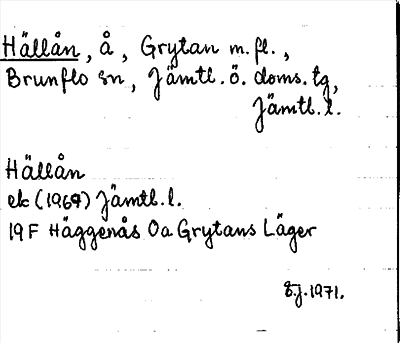 Hällån, å, Grytan m.fl.,
Brunflo sn, Jämtl.ö. doms.tg,
Jämtl.l.
Hällån
ek (1969) Jämtl.l.
19F Häggenås Oa Grytans Läger
1971.